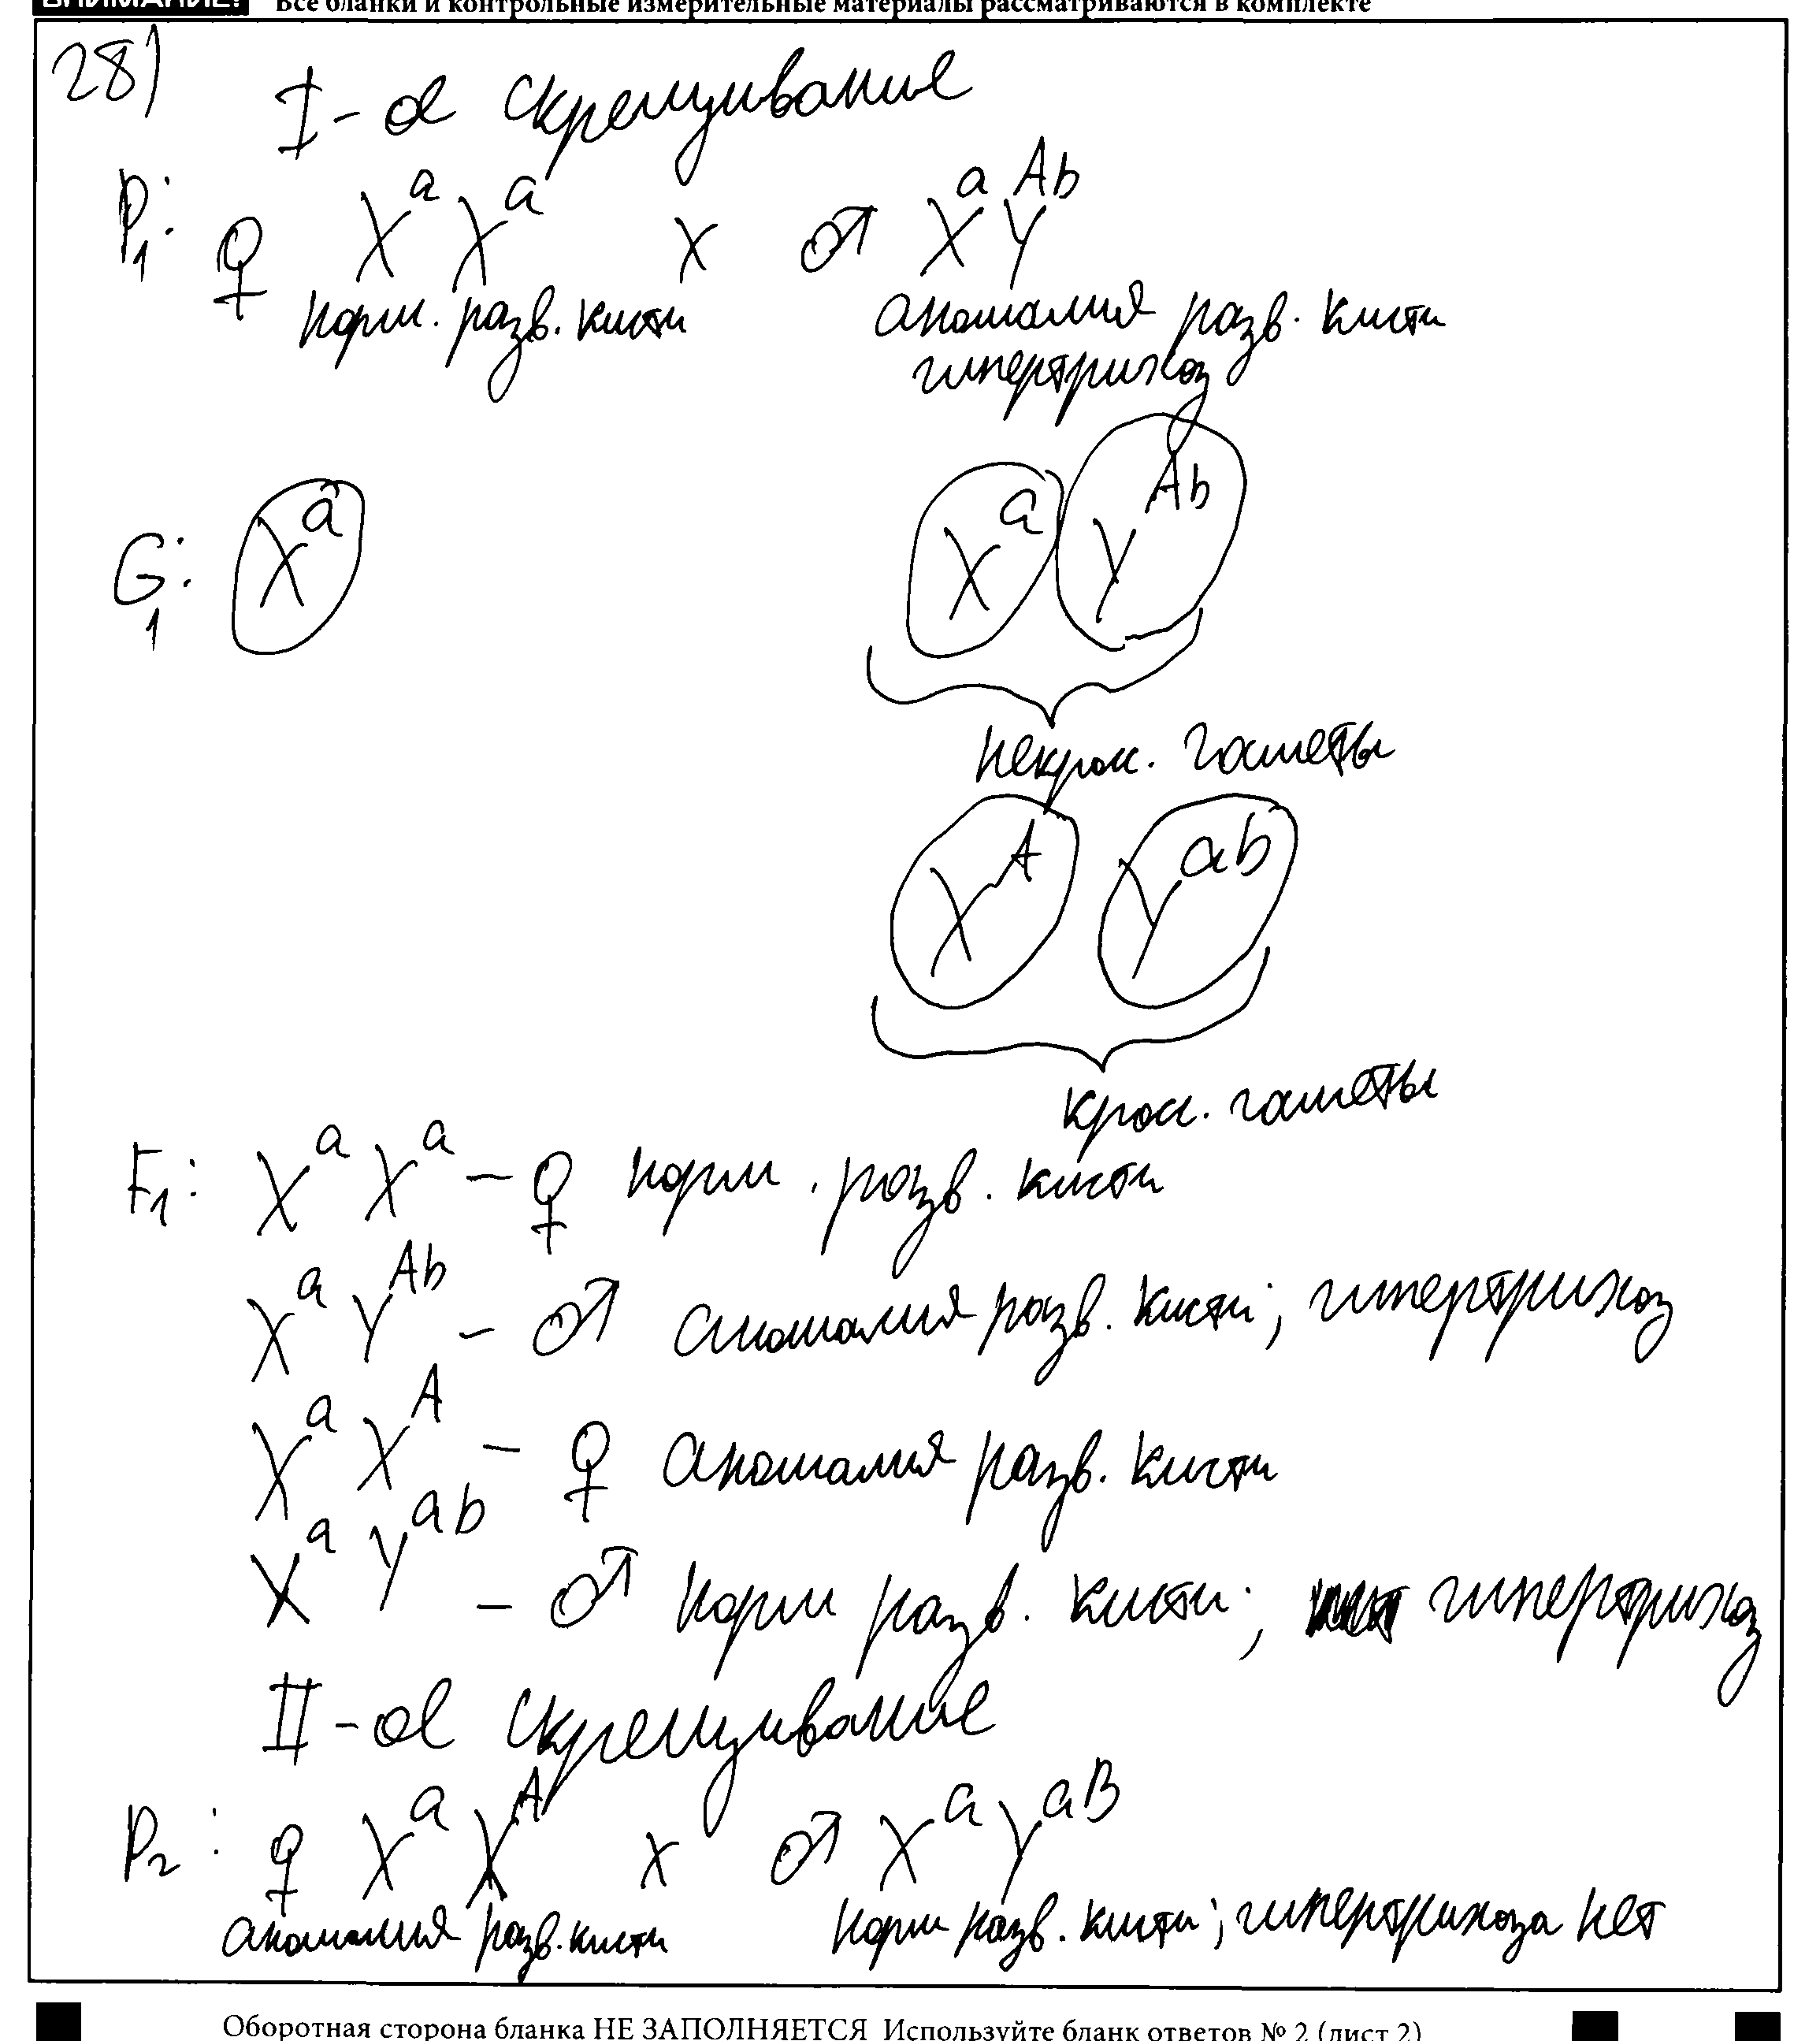 ВНИМАНИЕ! Все бланки и контрольные измерительные материалы рассматриваются в комплекте
28)
I-ое скрещивание
P₁: ♀ XᵃXᵃ x ♂ XᵃYᴬᵇ
норм. разв. кисти аномалия разв. кисти
гипертрихоз
G₁: Xᵃ Xᵃ Yᴬᵇ
некрос. гаметы
Xᴬ Yᵃᵇ
кросс. гаметы
F₁: XᵃXᵃ – ♀ норм. разв. кисти
XᵃYᴬᵇ – ♂ аномалия разв. кисти; гипертрихоз
XᵃXᴬ – ♀ аномалия разв. кисти
XᵃYᵃᵇ – ♂ норм разв. кисти; гипертрихоз
II-ое скрещивание
P₂: ♀ XᵃXᴬ x ♂ XᵃYᵃᴮ
аномалия разв. кисти норм разв. кисти; гипертрихоза нет
Оборотная сторона бланка НЕ ЗАПОЛНЯЕТСЯ Используйте бланк ответов № 2 (лист 2)